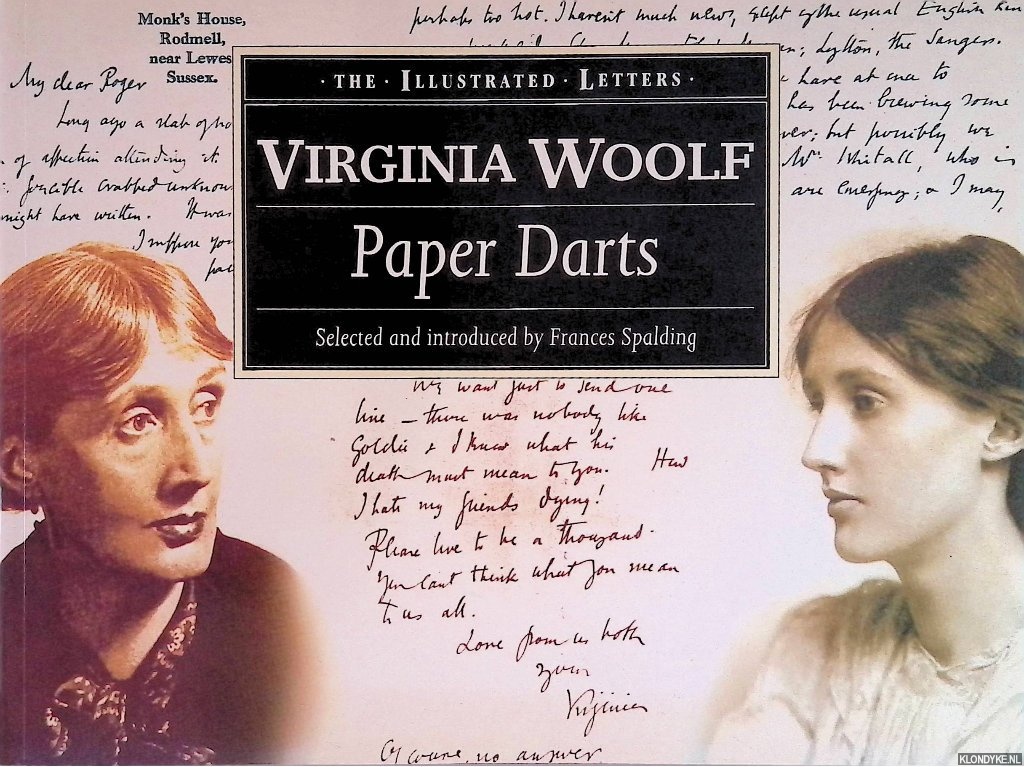 Monk's House,
Rodmell,
near Lewes
Sussex.
My dear Roger
Long ago a slab of
of affection attending it.
forcible crabbed unknow
might have written. It was
I suppose you
perhaps too hot. I haven't much news, except of the usual English kin
Lytton, the Sangers.
have at once to
has been brewing some
ver; but possibly we
Mr. Whitall, who is
are emerging; & I may
· THE · ILLUSTRATED · LETTERS ·
VIRGINIA WOOLF
Paper Darts
Selected and introduced by Frances Spalding
We want just to send one
line – there was nobody like
Goldie & I know what his
death must mean to you. How
I hate my friends dying!
Please live to be a thousand.
You cant think what you mean
to us all.
Love from us both
your
Virginia
Of course, no answer
KLONDYKE.NL